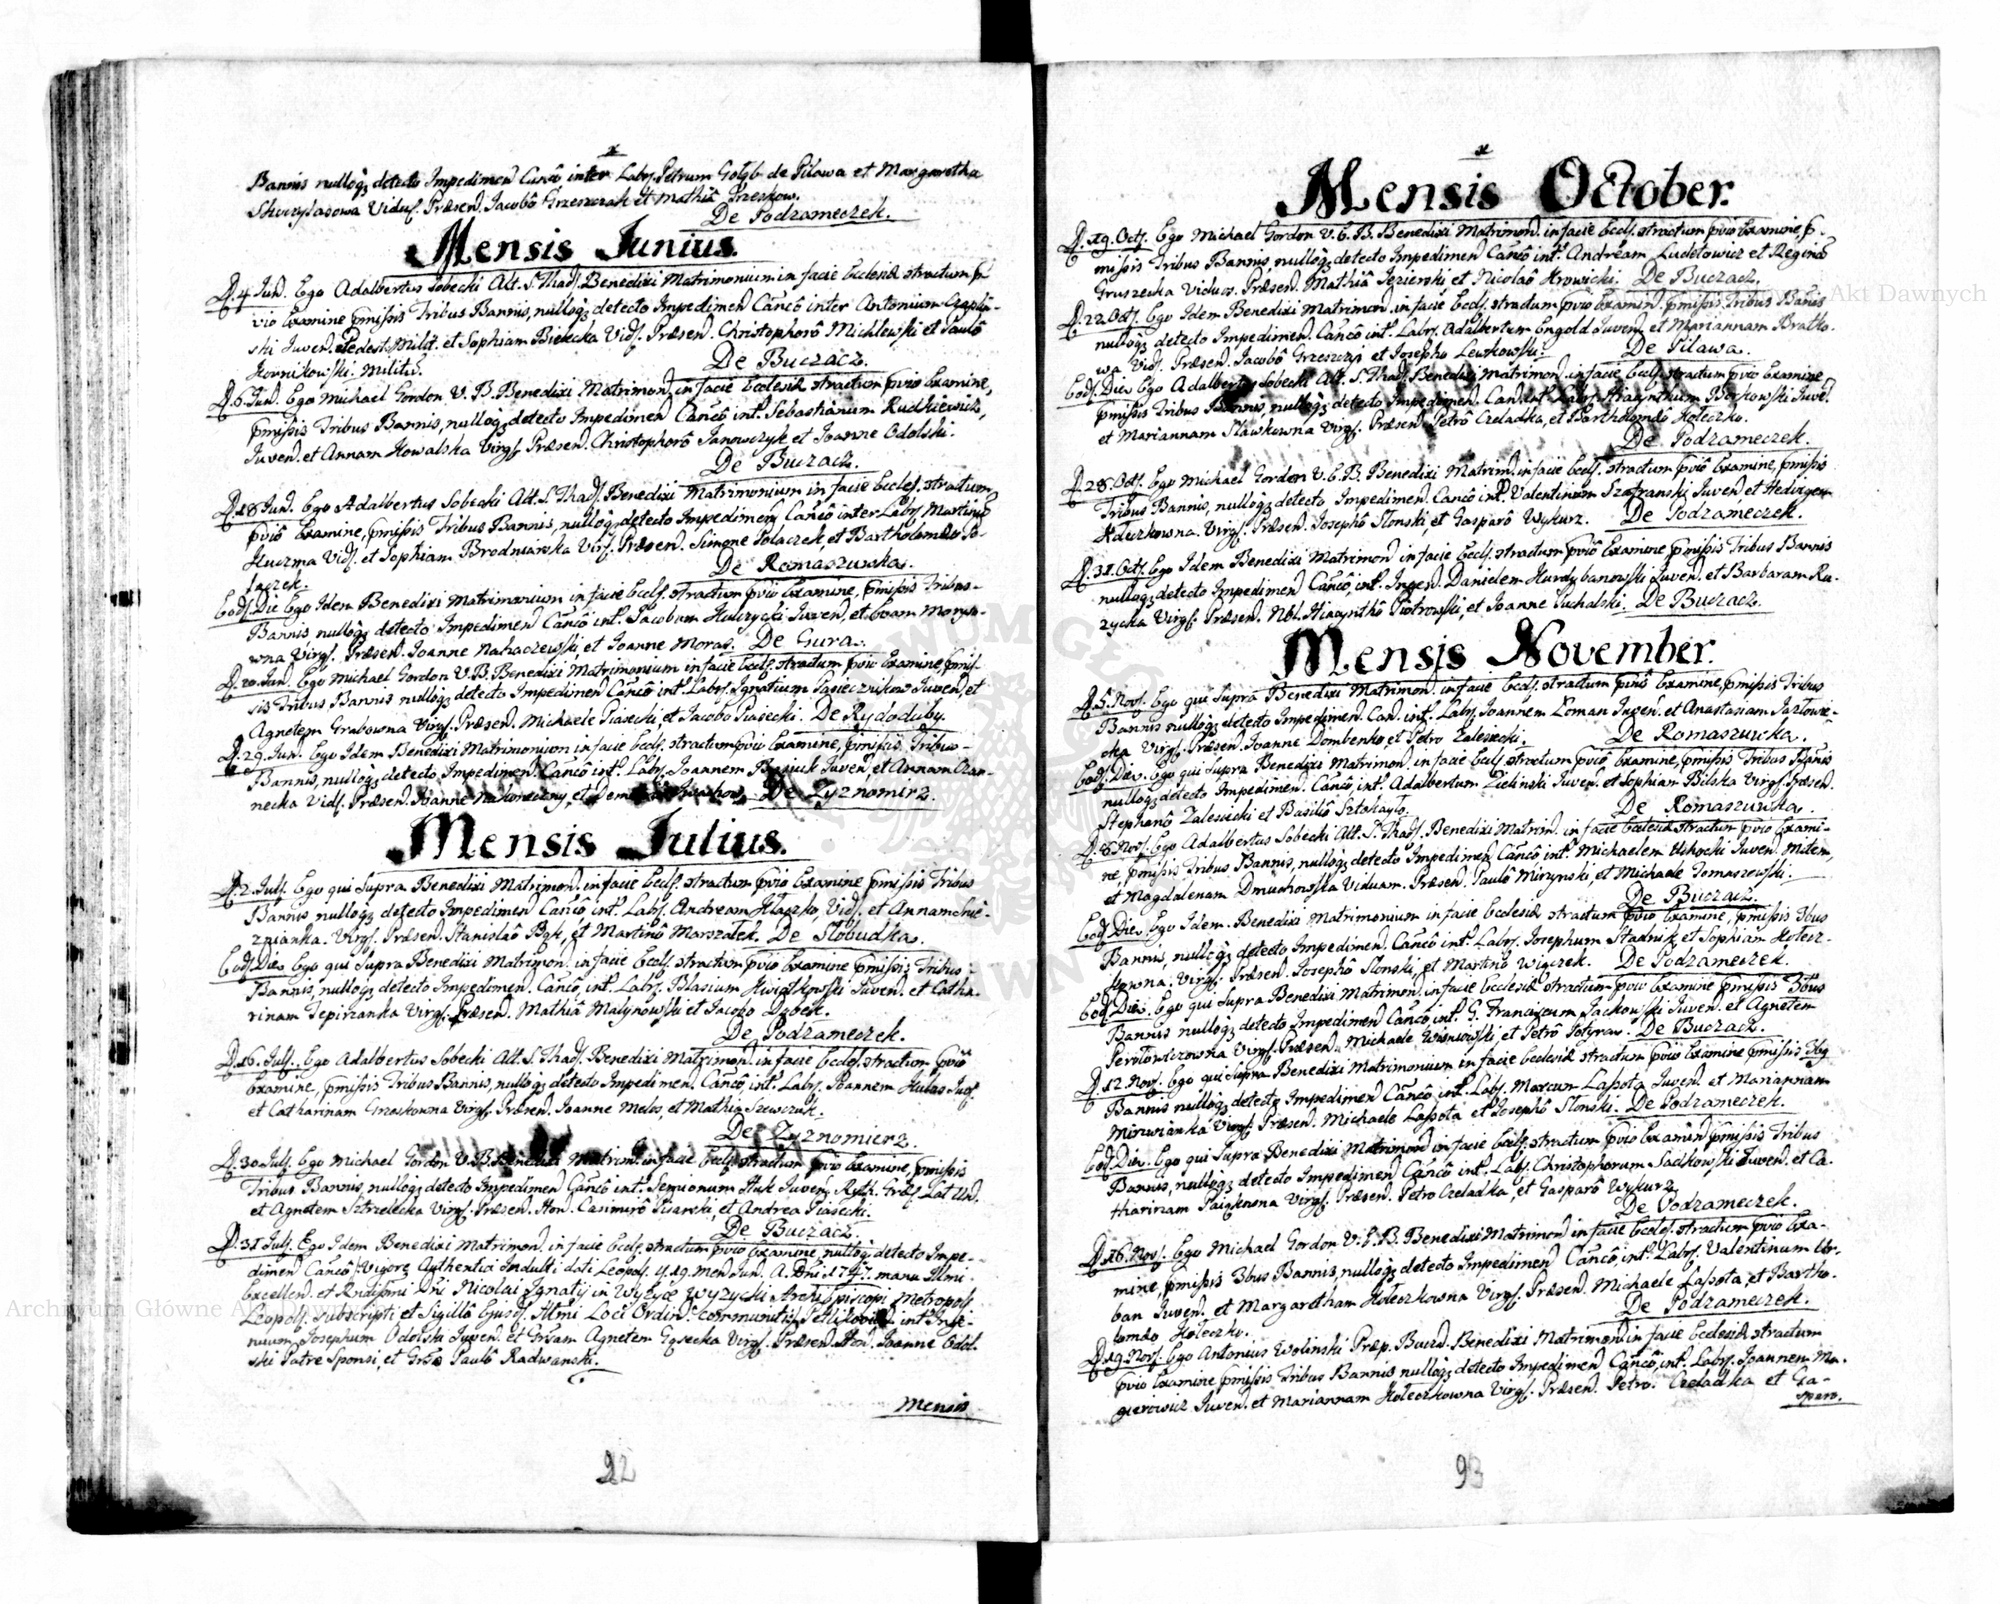 Bannis nulloq; detecto Impedimen Canco inter Labs. Petrum Gołąb de Pilawa et Margaretha
Vidus. Præsen. Jacobô Grzeszczak et Mathiâ Grzeskow.
De Podzameczek.
Mensis Junius.
D. 4 Jun. Ego Adalbertus Sobecki Alt. S. Thad. Benedixi Matrimonium in facie Ecclesiæ stractum p̄-
vio Examine p̄missis Tribus Bannis, nulloq; detecto Impedimen Cancô inter Antonium
ski Juven. Pedest. Milit. et Sophiam Bielecka Vid. Præsen. Christophorô Michlewski et Paulô
Kornikowski. Militib.
De Buczacz.
D. 6. Jun. Ego Michael Gordon V. B. Benedixi Matrimon. in facie Ecclesiæ stractum p̄vio Examine,
p̄missis Tribus Bannis, nulloq; detecto Impedimen Cancô int. Sebastianum Rudkiewicz,
Juven. et Annam Kowalska Virg. Præsen. Christophorô Janowczyk et Joanne Odolski.
De Buczacz.
D. 18 Jun. Ego Adalbertus Sobecki Alt. S. Thad. Benedixi Matrimonium in facie Eccles. stractum
p̄viô Examine, p̄missis Tribus Bannis, nulloq; detecto Impedimen Cancô inter Labs. Martinū
Huczma Vid. et Sophiam Brodniańska Virg. Præsen. Simone Polaczek, et Bartholomæo Po-
łaczek.
De Romaszuwka.
Eod. Die Ego Idem Benedixi Matrimonium in facie Eccls. stractum p̄vio Examine, p̄missis Tribus-
Bannis nulloq; detecto Impedimen Cancô int. Jacobum Hulczycki Juven. et Evam Morya-
wna Virg. Præsen. Joanne Nahaczewski et Joanne Moraz. De Gura.
D. 20. Jun. Ego Michael Gordon V. B. Benedixi Matrimonium in facie Eccls. stractum p̄vio Examine p̄mis-
sis Tribus Bannis nulloq; detecto Impedimen Cancô int. Labs. Ignatium Pasiecznikow Juven, et
Agnetem Grabowna Virg. Præsen. Michaele Piasecki et Jacobo Piasecki. De Rydoduby.
D. 29. Jun. Ego Idem Benedixi Matrimonium in facie Eccls. stractum p̄vio Examine, p̄missis Tribus-
Bannis, nulloq; detecto Impedimen Cancô int. Labs. Joannem Basiuk Juven, et Annam Czar-
necka Vid. Præsen. Joanne et De Zyznomirz.
Mensis Julius.
D. 2. Jul. Ego qui Supra Benedixi Matrimon. in facie Eccls. stractum p̄vio Examine p̄missis Tribus
Bannis nulloq; detecto Impedimen Cancô int. Labs. Andream Vid. et Annam
Virg. Præsen. Stanislaô Bąk, et Martinô Marszałek. De Slobudka.
Eod. Die Ego qui Supra Benedixi Matrimon. in facie Eccls. stractum p̄vio Examine p̄missis Tribus-
Bannis, nulloq; detecto Impedimen. Cancô, int. Labs. Blasium Kwiatkowski Juven. et Catha-
rinam Virg. Præsen. Mathiâ Malynowski et Jacobo Dąbek.
De Podzameczek.
D. 16. Jul. Ego Adalbertus Sobecki Alt. S. Thad. Benedixi Matrimon. in facie Eccles. stractum p̄viô
Examine, p̄missis Tribus Bannis, nulloq; detecto Impedimen. Cancô int. Labs. Joannem Juv.
et Catharinam Virg. Præsen. Joanne et Mathia Szewczuk.
De Zyznomierz.
D. 30 Jul. Ego Michael Gordon V. B. Benedixi Matrim. in facie Eccls. stractum p̄vio Examine, p̄missis
Tribus Bannis, nulloq; detecto Impedimen Cancô int. Juven. Ryth. Græc. Lat. Un.
et Agnetem Sztrelecka Virg. Præsen. Hon. Casimirô Pisarski, et Andrea Piasecki.
De Buczacz.
D. 31 Jul. Ego Idem Benedixi Matrimon. in facie Eccls. stractum p̄vio Examine, nulloq; detecto Impe-
dimen Cancô, Vigore Authentici Indulti dati Leopol. 19. Men Jun. A. Dni 1747. manu Illmi.
Excellen. et Rndissmi Dni Nicolai Ignatij in Wyzyce Wyzycki Archi Episcopi Metropol.
Leopol. Subscripti et Sigillô Loci Ordin. communiti int. Inge-
nuum Josephum Odolski Juven. et Agnetem Virg. Præsen. Hon. Joanne Odol-
ski Patre Sponsi, et Paulô Radwanski.
Mensis
92
Mensis October.
D. 19. Oct. Ego Michael Gordon V. E. B. Benedixi Matrimon. in facie Eccls. stractum p̄vio Examine p̄-
missis Tribus Bannis, nulloq; detecto Impedimen Cancô int. Andream Ludetowicz et Reginā
Gruszecka Viduas. Præsen. Mathiâ Jezierski et Nicolaô Krowicki. De Buczacz.
D. 22. Oct. Ego Idem Benedixi Matrimon. in facie Eccls. stractum p̄vio Examin. p̄missis Tribus Banis
nulloq; detecto Impedimen. Cancô int. Labs. Adalbertum Juven et Mariannam Bratko-
wa Vid. Præsen. Jacobô Grzeszczyi et Josepho Leszkowski. De Pilawa.
Eod. Die. Ego Adalbertus Sobecki Alt. S. Thad. Benedixi Matrimon. in facie Eccls. stractum p̄vio Examine
p̄missis Tribus Bannis, nulloq; detecto Impedimen. Can. int. Labs. Hyacynthum Borkowski Juve.
et Mariannam Sławkowna Virg. Præsen. Petrô Czeladka, et Bartholomæô Holeczko.
De Podzameczek.
D. 28. Oct. Ego Michael Gordon V. E. B. Benedixi Matrim. in facie Eccls. stractum p̄viô Examine, p̄missis
Tribus Bannis, nulloq; detecto Impedimen. Cancô int. Valentinum Szafranski Juven et Hedvigem
Virg. Præsen. Josephô Slonski, et Gasparô Wykurz. De Podzameczek.
D. 31. Oct. Ego Idem Benedixi Matrimon in facie Eccls. stractum p̄viô Examine p̄missis Tribus Bannis
nulloq; detecto Impedimen Cancô, int. Ingen. Danielem Hurdybanowski Juven. et Barbaram Ru-
zycka Virg. Præsen. Nbl. Hiacynthô Piotrowski, et Joanne Puchalski. De Buczacz.
Mensis November.
D. 5. Nov. Ego qui Supra Benedixi Matrimon. in facie Eccls. stractum p̄viô Examine, p̄missis Tribus
Bannis nulloq; detecto Impedimen. Can. int. Labs. Joannem Loman Juven. et Anastasiam Jazlowie-
cka Virg. Præsen. Joanne Dombenko et Petro Zalesiecki. De Romaszuwka.
Eod. Die. Ego qui Supra Benedixi Matrimon. in facie Eccls. stractum p̄viô Examine, p̄missis Tribus Banis
nulloq; detecto Impedimen. Cancô, int. Adalbertum Zielinski Juven. et Sophiam Bilska Virg. Præsen.
Stephanô Zalesiecki et Basiliô
De Romaszuwka.
D. 8. Nov. Ego Adalbertus Sobecki Alt. S. Thad. Benedixi Matrim. in facie Ecclesiæ stractum p̄vio Exami-
ne, p̄missis Tribus Bannis, nulloq; detecto Impedimen Cancô int. Michaelem Juven. Militem,
et Magdalenam Dmuchowska Viduam. Præsen. Paulô Mirzynski, et Michaele Tomaszewski.
De Buczacz.
Eod. Die. Ego Idem. Benedixi Matrimonium in facie Ecclesiæ stractum p̄vio Examine, p̄missis 3bus
Bannis, nulloq; detecto Impedimen. Cancô int. Labs. Josephum Stadnik, et Sophiam Holecz-
kowna. Virg. Præsen. Josephô Slonski, et Martinô Wiączek. De Podzameczek.
Eod. Die. Ego qui Supra Benedixi Matrimon. in facie Ecclesiæ stractum p̄vio Examine p̄missis 3bus
Bannis nulloq; detecto Impedimen Cancô int. G. Franciscum Jackowski Juven. et Agnetem
Virg. Præsen. Michaele Wisniowski et Petrô De Buczacz.
D. 12. Nov. Ego qui Supra Benedixi Matrimonium in facie Ecclesiæ stractum p̄vio Examine p̄missis
Bannis nulloq; detecto Impedimen Cancô int. Labs. Marcum Lassota Juven. et Mariannam
Virg. Præsen. Michaele Lassota et Josephô Slonski. De Podzameczek.
Eod. Die. Ego qui Supra Benedixi Matrimon in facie Eccls. stractum p̄vio Examin p̄missis Tribus
Bannis, nulloq; detecto Impedimen Cancô int. Labs. Christophorum Sadkowski Juven. et Ca-
tharinam Virg. Præsen. Petro Czeladka, et Gasparô Wykurz
De Podzameczek.
D. 16. Nov. Ego Michael Gordon V. E. B. Benedixi Matrimon in facie Eccles. stractum p̄vio Exa-
mine, p̄missis 3bus Bannis, nulloq; detecto Impedimen Cancô int. Labs. Valentinum Ur-
ban Juven. et Margaretham Holeczkowna Virg. Præsen. Michaele Lassota, et Bartho-
lomæo Holeczko.
De Podzameczek.
D. 19. Nov. Ego Antonius Wolinski Præp. Buczn. Benedixi Matrimon in facie Ecclesiæ stractum
p̄vio Examine p̄missis Tribus Bannis nulloq; detecto Impedimen Cancô, int. Labs. Joannem Ma-
gierowicz Juven. et Mariannam Holeczkowna Virg. Præsen. Petro. Czeladka et Ga-
sparo.
93
Archiwum Główne Akt Dawnych